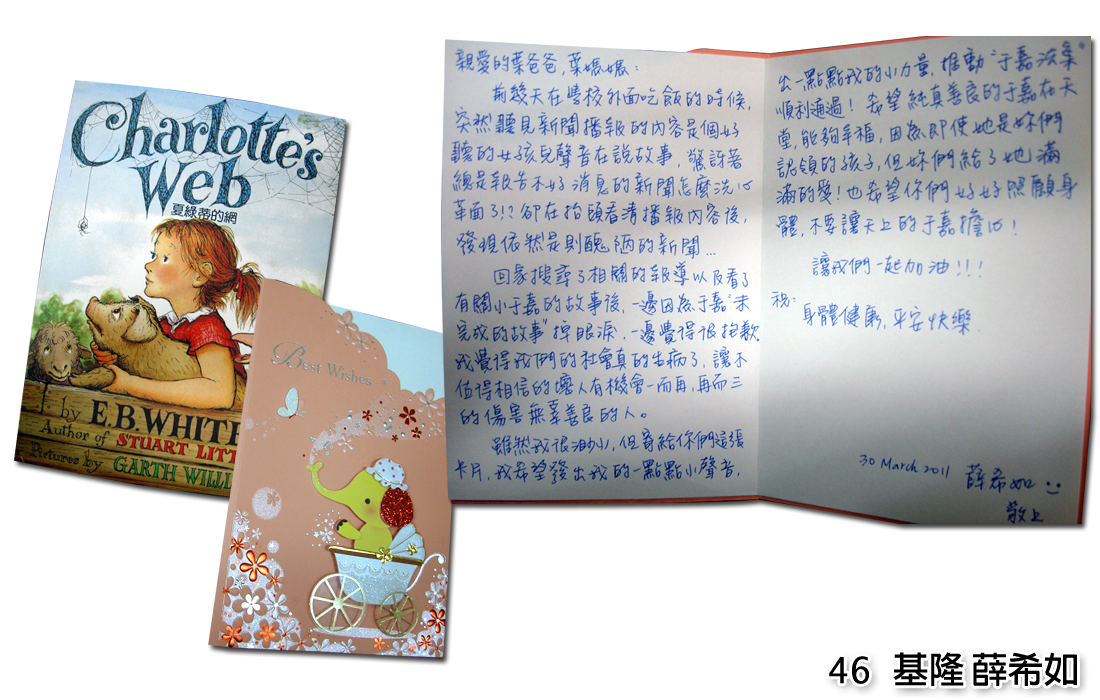 Charlotte's
Web
夏綠蒂的網
by E.B. WHITE
Author of STUART LITT
Pictures by GARTH WILLI
Best Wishes
親愛的葉爸爸,葉媽媽:
前幾天在學校外面吃飯的時候,
突然聽見新聞播報的內容是個好
聽的女孩兒聲音在說故事,驚訝著
總是報告不好消息的新聞怎麼洗心
革面了!?卻在抬頭看清播報內容後,
發現依然是則醜陋的新聞...
回家搜尋了相關的報導以及看了
有關小于嘉的故事後,一邊因為于嘉"未
完成的故事"掉眼淚,一邊覺得很抱歉.
我覺得我們的社會真的生病了,讓不
值得相信的壞人有機會一而再,再而三
的傷害無辜善良的人。
雖然我很渺小,但寄給你們這張
卡片,我希望發出我的一點點小聲音,
出一點點我的小力量,推動"于嘉法案"
順利通過!希望純真善良的于嘉在天
堂,能夠幸福,因為即使她是妳們
認領的孩子,但妳們給了她滿
滿的愛!也希望你們好好照顧身
體,不要讓天上的于嘉擔心!
讓我們一起加油!!!
祝:
身體健康,平安快樂.
30 March 2011 薛希如 :)
敬上
46 基隆 薛希如